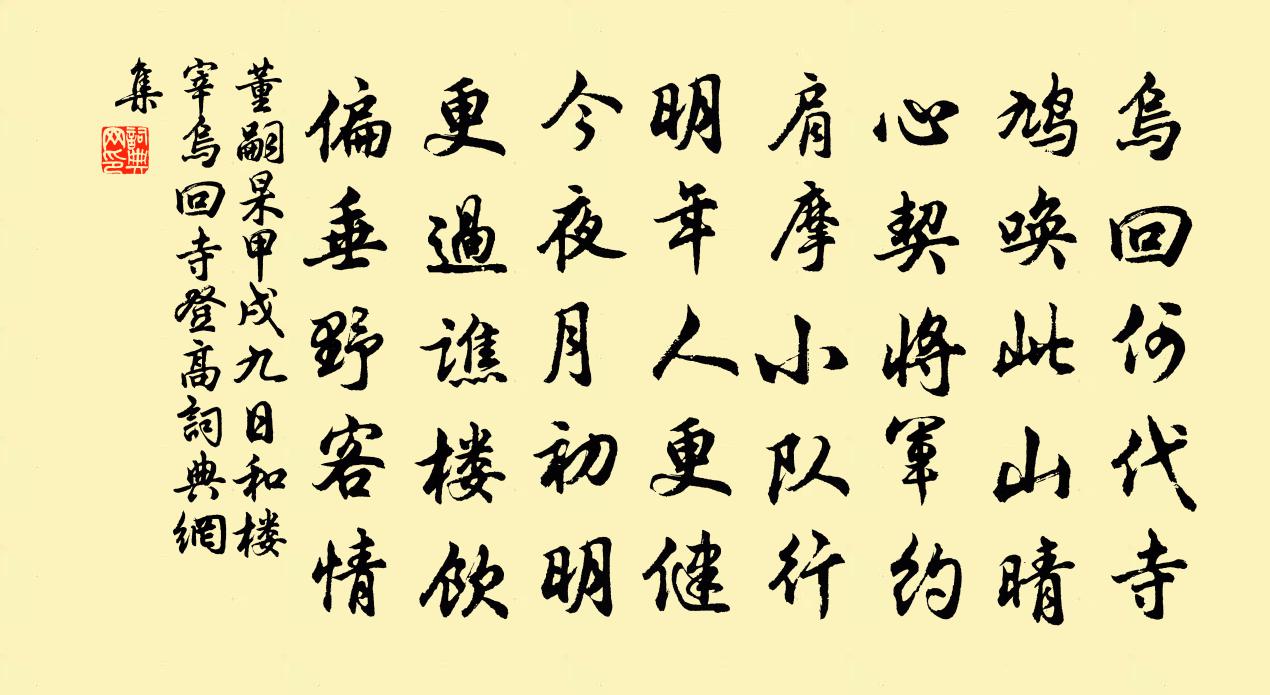 烏回何代寺
鳩唤此山晴
心契將軍約
肩摩小队行
明年人更健
今夜月初明
更過譙楼飲
偏垂野客情
董嗣杲甲戌九日和楼
宰烏回寺登高詞典網
集
詞典网印